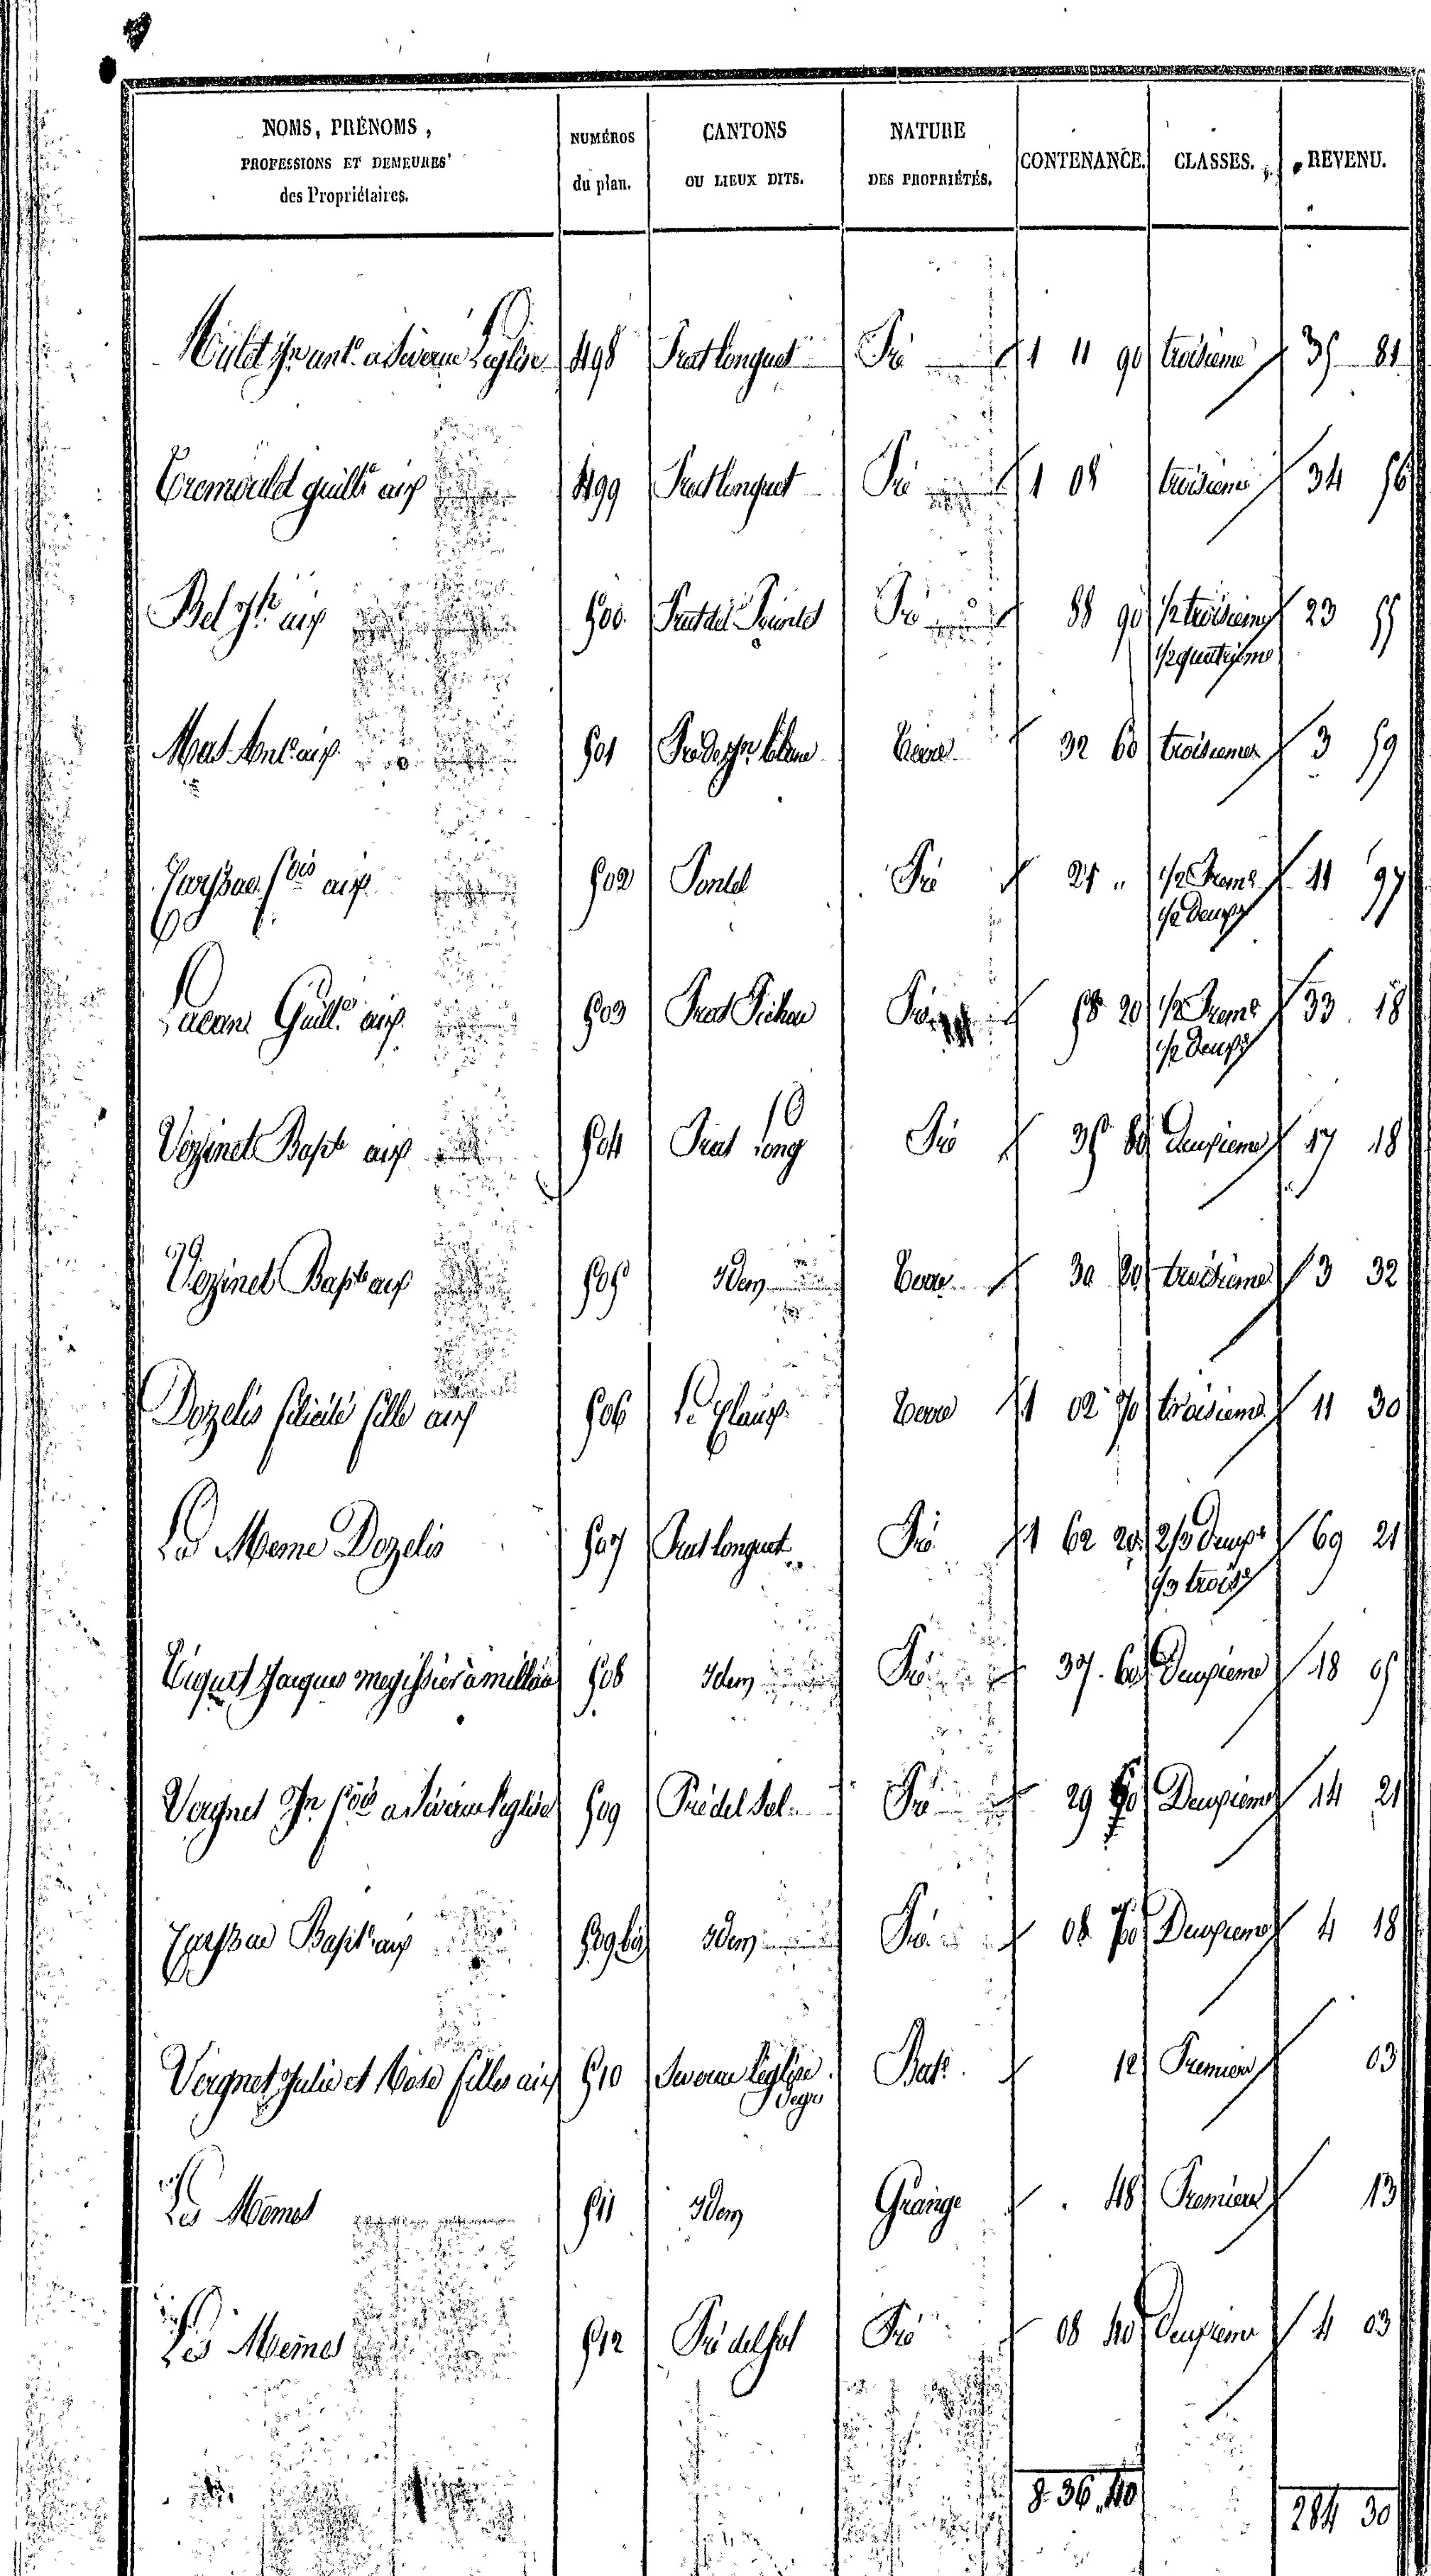 NOMS, PRÉNOMS, PROFESSIONS ET DEMEURES des Propriétaires. NUMÉROS du plan. CANTONS OU LIEUX DITS. NATURE DES PROPRIÉTÉS. CONTENANCE. CLASSES. REVENU.
Jn ant.e a Severac Leglise 498 Prat longuet Pré 1 11 90 troisieme 35 81
guill.e aix 499 Prat longuet Pré 1 08 troisieme 34 56
Bel aix 500 Prat del Pré 88 90 1/2 troisieme 23 55
1/2 quatrieme
Ant.e aix 501 Terre 32 60 troisieme 3 59
f.cois aix 502 Pontel Pré 21 " 1/2 Prem.e 11 97
1/2 Deux.e
Guill.e aix 503 Prat Pré 58 20 1/2 Prem.e 33 18
1/2 Deux.e
Vezinet Bap.te aix 504 Prat Long Pré 35 80 deuxieme 17 18
Vezinet Bap.te aix 505 Idem Terre 30 20 troisieme 3 32
Dozelis felicité fille aix 506 Le Claux Terre 1 02 70 troisieme 11 30
La Meme Dozelis 507 Prat longuet Pré 1 62 20 2/3 deux.e 69 21
1/3 trois.e
Jacques megissier a millau 508 Idem Pré 37 60 Deuxieme 18 05
Vergnet Jn f.cois a Severac l'eglise 509 Pré del Sol Pré 29 60 Deuxieme 14 21
Bap.te aix 509 bis Idem Pré 08 70 Deuxieme 4 18
Vergnet Julie et Rose filles aix 510 Severac Léglise Bat. 12 Premiere 03
Les Mêmes 511 Idem Grange 48 Premiere 13
Les Mêmes 512 Pré del sol Pré 08 40 Deuxieme 4 03
8 36 40 284 30